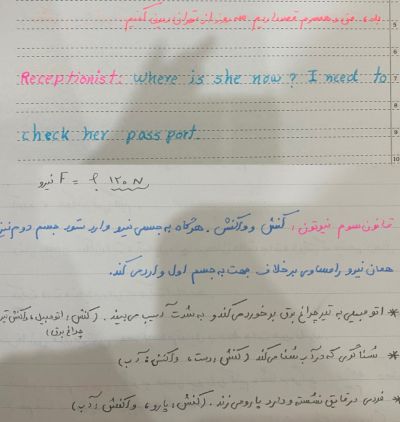 بله، من و همسرم قصد داریم سه روز از تهران دیدن کنیم
Receptionist: Where is she now? I need to
check her passport.
نیرو F = ? ۱۲۰ N
قانون سوم نیوتون: کنش و واکنش. هرگاه به جسمی نیرو وارد شود جسم دوم نیز
همان نیرو را مساوی برخلاف جهت به جسم اول وارد می کند.
* اتومبیلی به تیر چراغ برق برخورد می کند و به شدت آسیب می بیند. (کنش: اتومبیل، واکنش تیر
چراغ برق)
* شناگری که در آب شنا می کند (کنش: دست، واکنش: آب)
* فردی در قایق نشسته و دارد پارو می زند. (کنش: پارو، واکنش: آب)
5
6
7
8
9
10